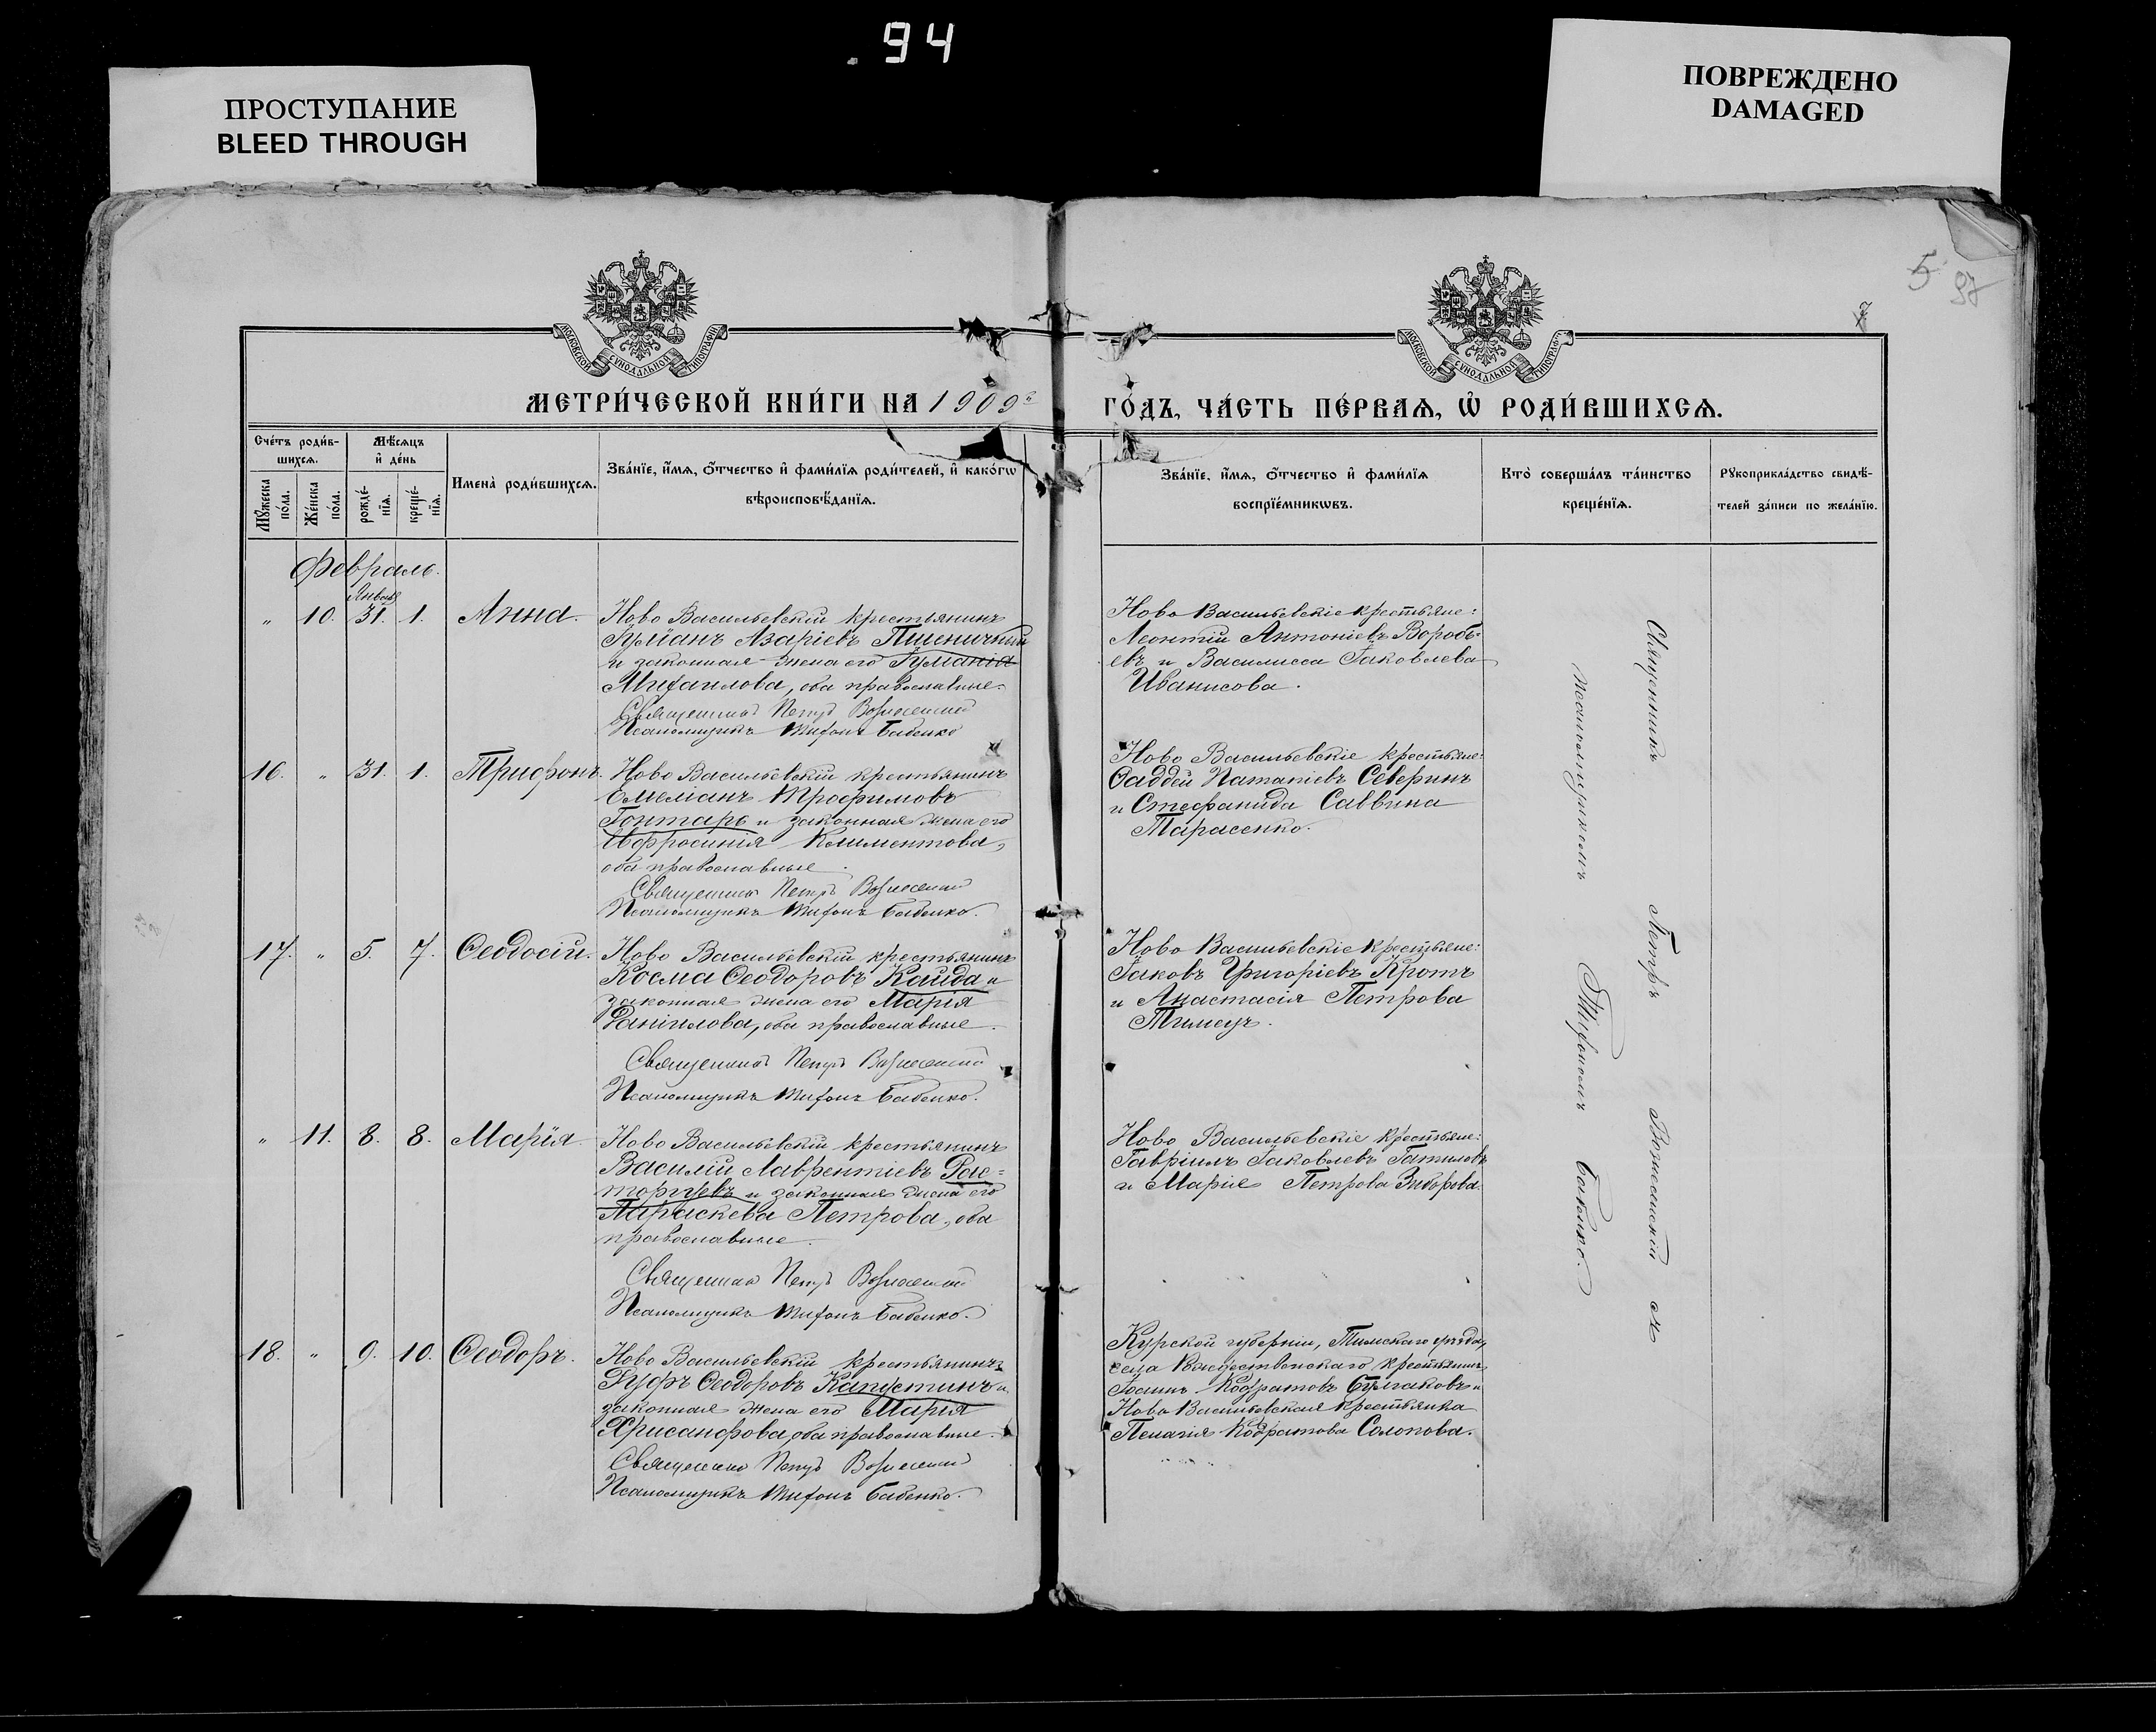 94
ПРОСТУПАНИЕ
BLEED THROUGH
ПОВРЕЖДЕНО
DAMAGED
5
97
7
МОСКОВСКОЙ СѴНОДАЛЬНОЙ ТИПОГРАФІИ
МОСКОВСКОЙ СѴНОДАЛЬНОЙ ТИПОГРАФІИ
МЕТРИ́ЧЕСКОЙ КНИ́ГИ НА 1909й
ГО́ДЪ, ЧА́СТЬ ПЕ́РВАѦ, Ѽ РОДИ́ВШИХСѦ.
Сче́тъ роди́в-
шихсѧ.
Мѣ́сѧцъ
и҆ де́нь
Мꙋ́жеска по́ла.
Же́нска по́ла.
рожде́-
нїѧ.
креще́-
нїѧ.
Имена̀ роди́вшихсѧ.
Зва́нїе, и҆́мѧ, ѻ҆́тчество и҆ фами́лїѧ роди́телей, и҆ како́гѡ
вѣроисповѣ́данїѧ.
Зва́нїе, и҆́мѧ, ѻ҆́тчество и҆ фами́лїѧ
воспрїе́мникѡвъ.
Кто̀ соверша́лъ та́инство
креще́нїѧ.
Рꙋкоприкла́дство свидѣ́-
телей за́писи по жела́нїю.
Февраль.
Январь
" 10. 31. 1. Анна.
Ново Васильевскій крестьянинъ
Іуліанъ Азаріевъ Пшеничный
и законная жена его Іуліанія
Михаилова, оба православные.
Священникъ Петръ Вознесенскій
Псаломщикъ Тифонъ Бабенко
Ново Васильевскіе крестьяне:
Леонтій Антоніевъ Воробь-
евъ и Василисса Іаковлева
Иванисова.
16. " 31. 1. Трифонъ.
Ново Васильевскій крестьянинъ
Емеліанъ Трофимовъ
Гонтарь и законная жена его
Евфросинія Климентова,
оба православные
Священникъ Петръ Вознесенскій
Псаломщикъ Тифонъ Бабенко.
Ново Васильевскіе крестьяне:
Фаддей Ипатіевъ Северинъ
и Стефанида Саввина
Тарасенко.
17. " 5. 7. Феодосій.
Ново Васильевскій крестьянинъ
Косма Феодоровъ Кайда и
законная жена его Марія
Даніилова, оба православные.
Священникъ Петръ Вознесенскій
Псаломщикъ Тифонъ Бабенко.
Ново Васильевскіе крестьяне:
Іаковъ Григоріевъ Кротъ
и Анастасія Петрова
" 11. 8. 8. Марія
Ново Васильевскій крестьянинъ
Василій Лаврентіевъ Рас-
торгуевъ и законная жена его
Параскева Петрова, оба
православные.
Священникъ Петръ Вознесенскій
Псаломщикъ Тифонъ Бабенко.
Ново Васильевскіе крестьяне:
Гавріилъ Іаковлевъ Гатиловъ
и Марія Петрова Зиборова.
18. " 9. 10. Феодоръ.
Ново Васильевскій крестьянинъ
Руфъ Феодоровъ Капустинъ и
законная жена его Марія
Хрисанфова, оба православные.
Священникъ Петръ Вознесенскій
Псаломщикъ Тифонъ Бабенко.
Курской губерніи, Тимскаго уѣзда,
села Рождественскаго крестьянинъ
Іоаннъ Кодратовъ Булгаковъ и
Ново Васильевская крестьянка
Пелагія Кодратова Солопова.
Священникъ Петръ Вознесенскій съ
псаломщикомъ Тифономъ Бабенко.